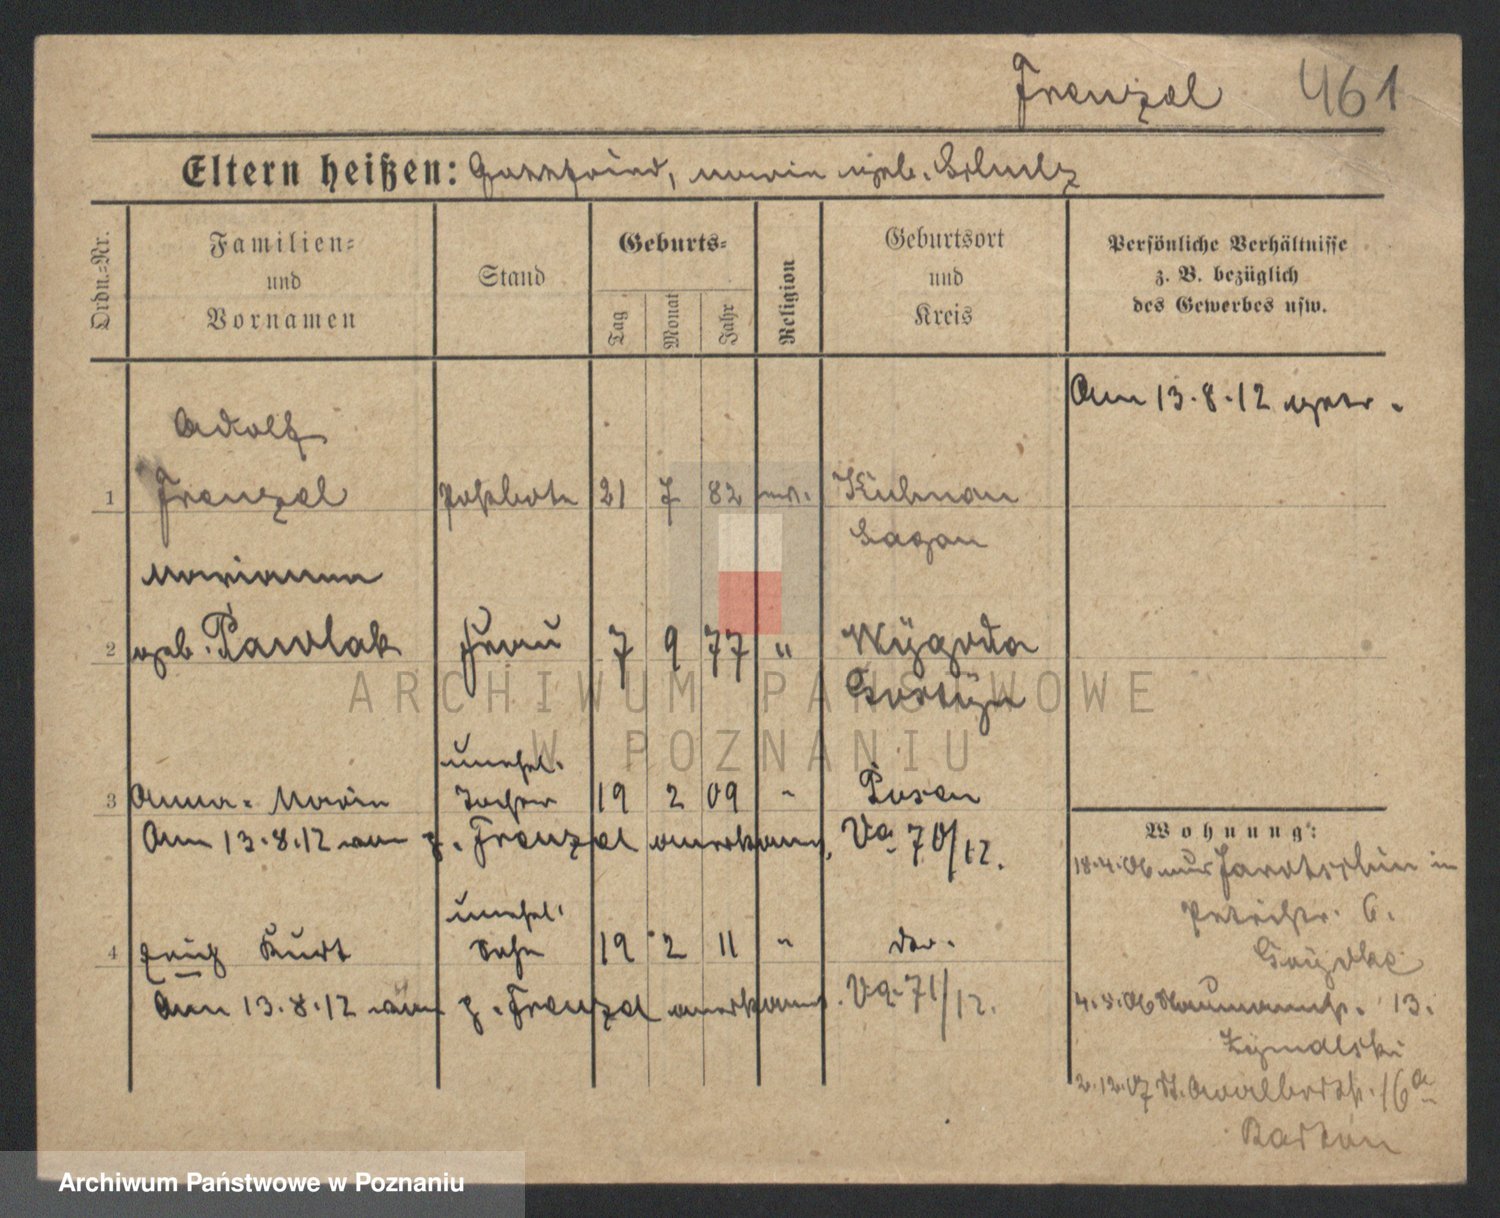 Frenzel 461
Eltern heißen: Gottfried, Marie geb. Schulz
Ordn.-Nr.
Familien- und Vornamen
Stand
Geburts-
Tag
Monat
Jahr
Religion
Geburtsort und Kreis
Persönliche Verhältnisse
z. B. bezüglich
des Gewerbes usw.
Am 13.8.12 getr.
Adolf
1 Frenzel Postbote 21 7 82 Kulmau
Sagan
Marianna
2 geb. Pawlak Frau 7 9 77 " Wÿgoda
Gostÿn
unehel.
3 Anna-Marie Tochter 19 2 09 " Posen
Am 13.8.12 v. Frenzel anerkannt. Va 70/12.
unehel.
4 Erich Kurt Sohn 19 2 11 " do.
Am 13.8.12 v. Frenzel anerkannt. Va. 71/12.
Wohnung:
18.4.06 aus Jarotschin in
Petristr. 6.
4.5.06 Naumannstr. 13.
2.12.07 St. Adalbertstr. 16a
ARCHIWUM PAŃSTWOWE
W POZNANIU
Archiwum Państwowe w Poznaniu